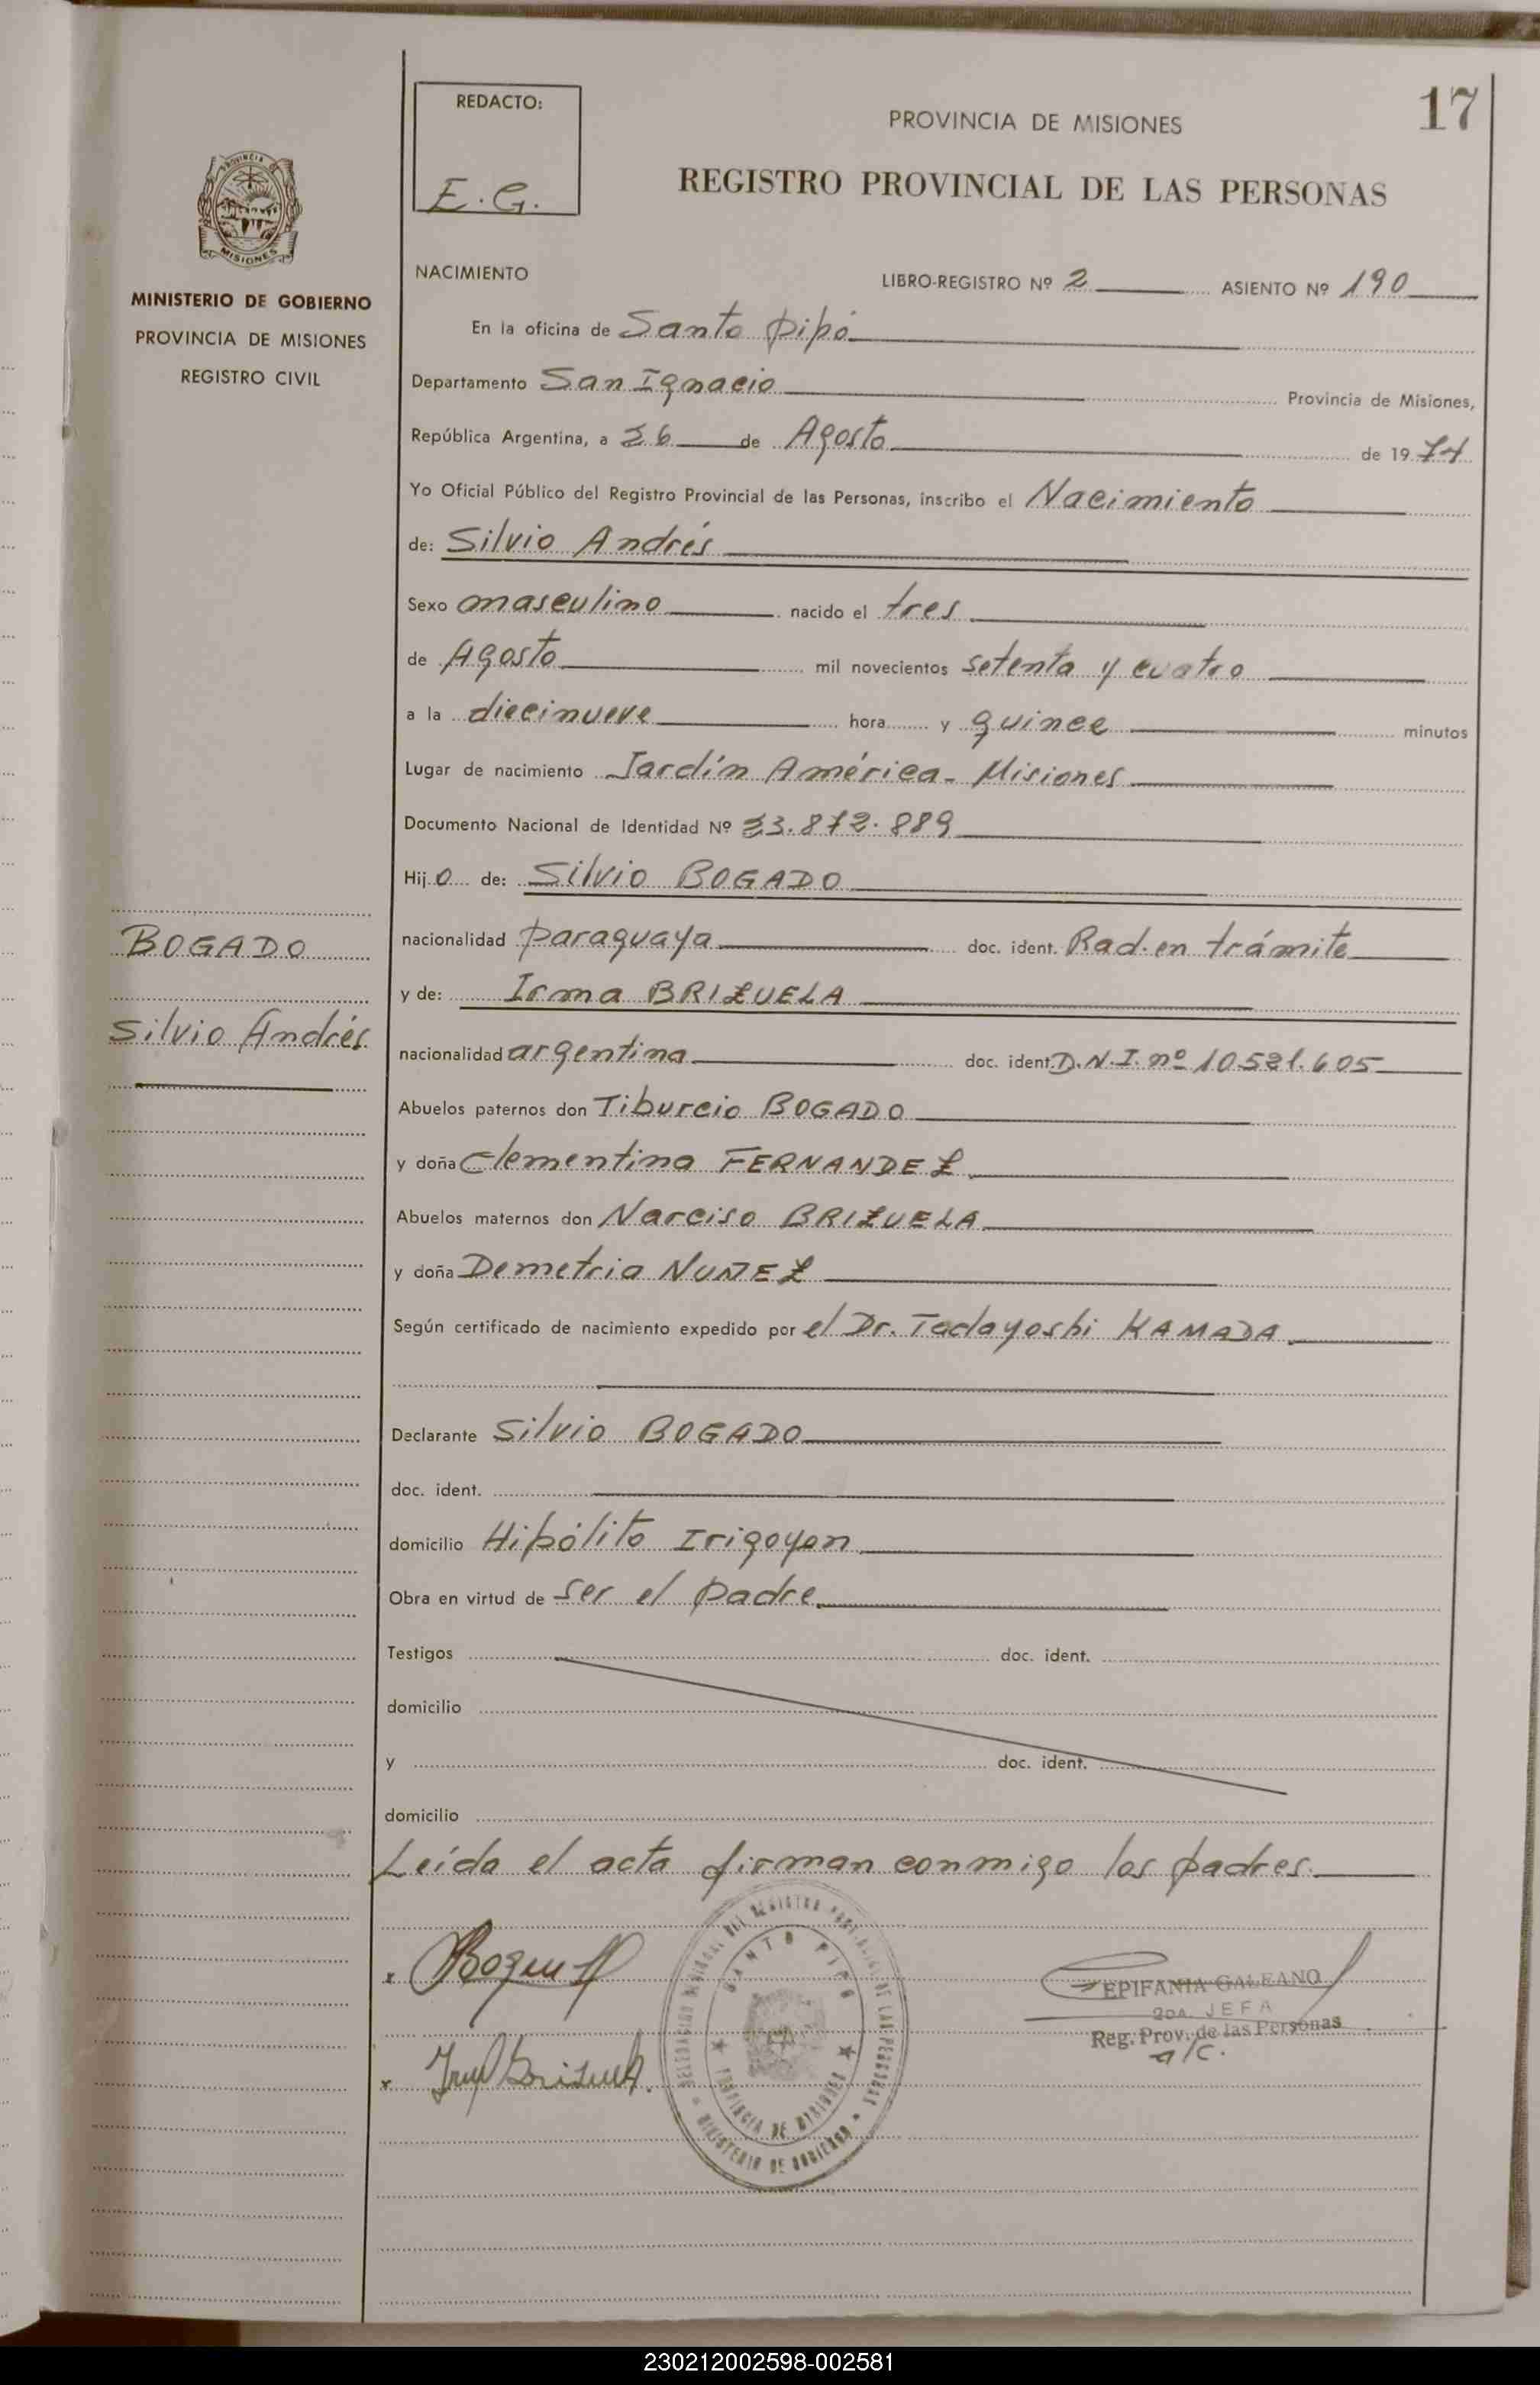 17
REDACTO:
E.G.
PROVINCIA DE MISIONES
REGISTRO PROVINCIAL DE LAS PERSONAS
PROVINCIA
MISIONES
MINISTERIO DE GOBIERNO
PROVINCIA DE MISIONES
REGISTRO CIVIL
NACIMIENTO LIBRO-REGISTRO Nº 2 ASIENTO Nº 190
En la oficina de Santo Pipó
Departamento San Ignacio Provincia de Misiones,
República Argentina, a 26 de Agosto de 1974
Yo Oficial Público del Registro Provincial de las Personas, inscribo el Nacimiento
de: Silvio Andrés
Sexo masculino nacido el tres
de Agosto mil novecientos setenta y cuatro
a la diecinueve hora y quince minutos
Lugar de nacimiento Jardín América - Misiones
Documento Nacional de Identidad Nº 23.872.889
Hijo de: Silvio BOGADO
BOGADO
nacionalidad paraguaya doc. ident. Rad. en trámite
y de: Irma BRIZUELA
Silvio Andrés
nacionalidad argentina doc. ident. D.N.I. nº 10.521.605
Abuelos paternos don Tiburcio BOGADO
y doña Clementina FERNANDEZ
Abuelos maternos don Narciso BRIZUELA
y doña Demetria NUÑEZ
Según certificado de nacimiento expedido por el Dr. Tadayoshi KAMADA
Declarante Silvio BOGADO
doc. ident.
domicilio Hipólito Irigoyen
Obra en virtud de ser el padre
Testigos doc. ident.
domicilio
y doc. ident.
domicilio
Leída el acta firman conmigo los padres.
SANTO PIPO
PROVINCIA DE MISIONES
MINISTERIO DE GOBIERNO
EPIFANIA GALEANO
2DA. JEFA
Reg. Prov. de las Personas
a/c.
230212002598-002581